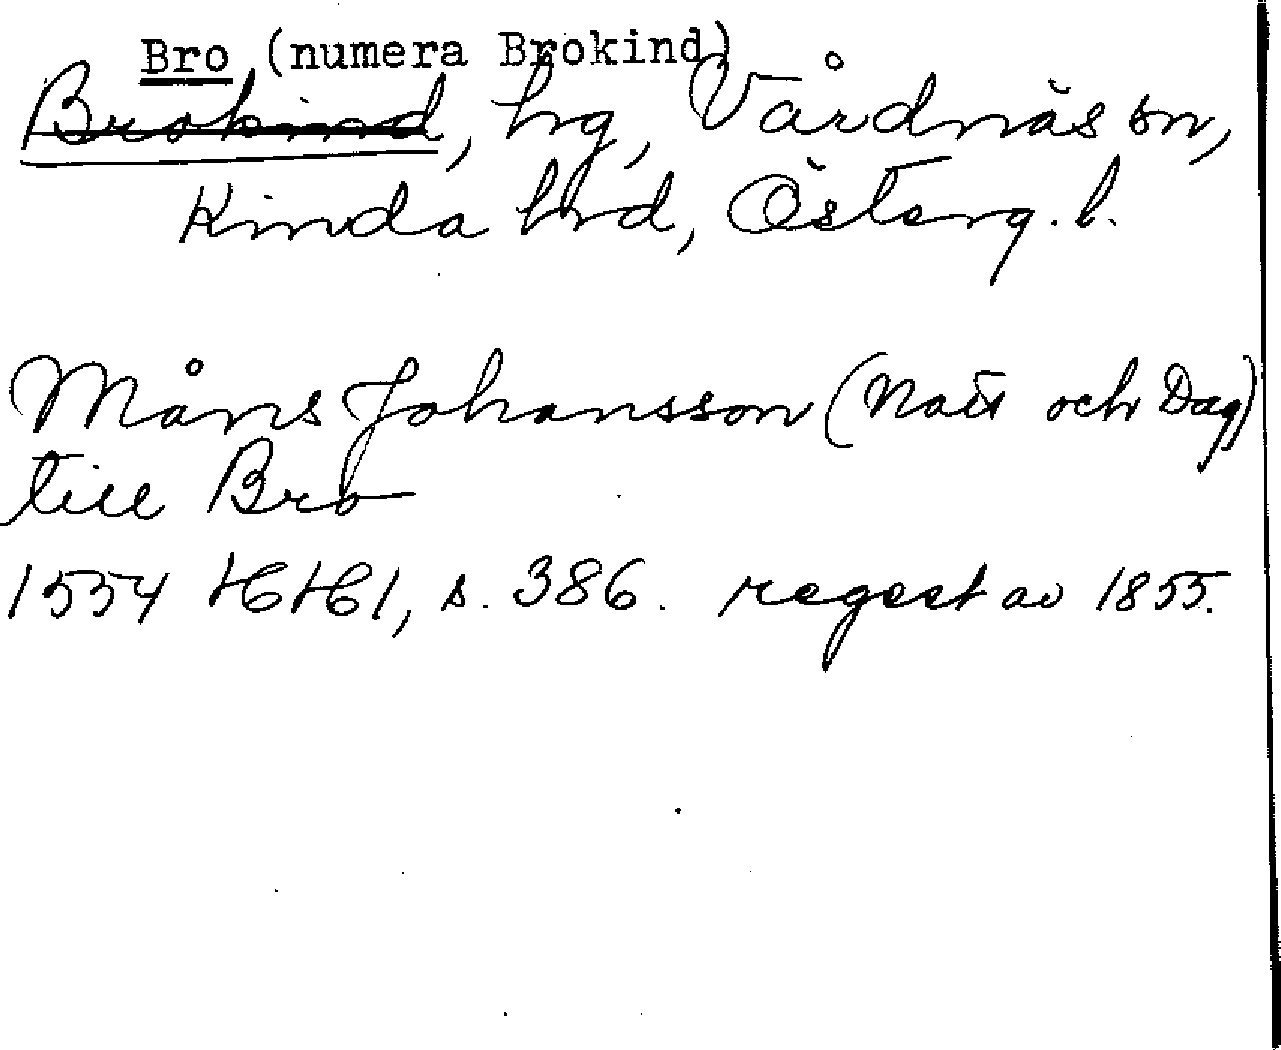 Bro (numera Brokind)
Brokind, hg, Vårdnäs sn,
Kinda hrd, Österg. l.
Måns Johansson (Natt och Dag)
till Bro
1554 HH1, s. 386. regest av 1855.